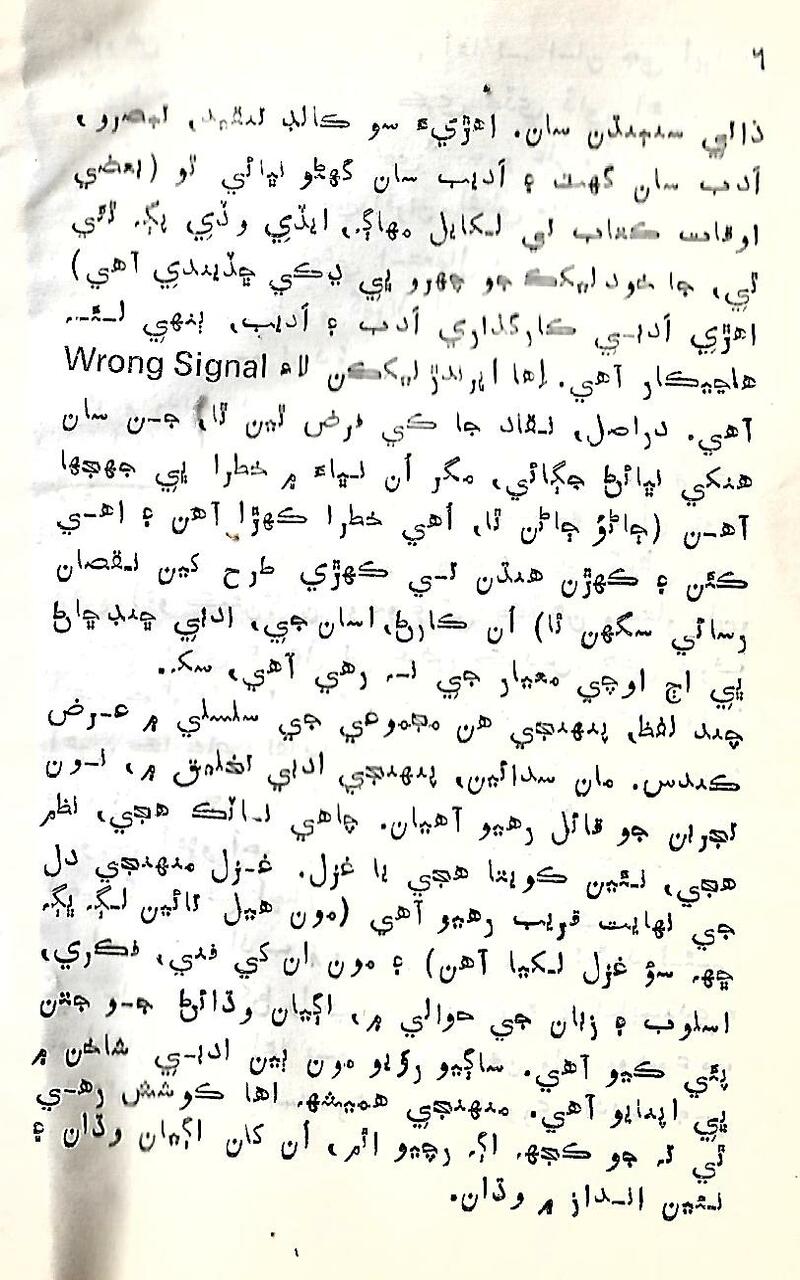 ٦
ذاتي سنٻنڌن سان. اهڙيءَ سو ڪالڊ تنقيد، تبصرو،
ادب سان گهٽ ۽ اديب سان گهڻو نڀائي ٿو (بعضي
اوقات ڪتاب تي لکيل مهاڳ، ايڏي وڏي پڳ ٿئي
ٿي، جا خود ليکڪ جو چهرو ئي ڍڪي ڇڏيندي آهي)
اهڙي ادبي ڪارگذاري ادب ۽ اديب، ٻنهي لئہ
هاڃيڪار آهي. اِها اڀرندڙ ليکڪن لاءِ Wrong Signal
آهي. دراصل، نقاد جا ڪي فرض ٿين ٿا، جن سان
هنکي نڀائڻ جڳائي، مگر اُن نڀاءَ ۾ خطرا ئي جهجها
آهن (ڄاڻوُ ڄاڻن ٿا، اُهي خطرا ڪهڙا آهن ۽ اهي
ڪٿن ۽ ڪهڙن هنڌن تي ڪهڙي طرح ڪين نقصان
رسائي سگهن ٿا) اُن ڪارڻ، اسان جي، ادبي ڇنڊ ڇاڻ
ئي اڄ اوچي معيار جي نہ رهي آهي، سکہ.
چند لفظ، پنهنجي هن مجموعي جي سلسلي ۾ عرض
ڪندس. مان سدائين، پنهنجي ادبي تخليق ۾، نون
تجربن جو قائل رهيو آهيان. چاهي ناٽڪ هجي، نظم
هجي، نئين ڪويتا هجي يا غزل. غزل منهنجي دل
جي نهايت قريب رهيو آهي (مون هيل تائين لڳ ڀڳ
ڇهہ سؤ غزل لکيا آهن) ۽ مون ان کي فني، فڪري،
اسلوب ۽ زبان جي حوالي ۾، اڳيان وڌائڻ جو جتن
پئي ڪيو آهي. ساڳيو رؤيو مون ٻين ادبي شاخن ۾
ئي اپنايو آهي. منهنجي هميشہ اها ڪوشش رهي
ٿي تہ جو ڪجهہ اڳ رچيو اٿم، اُن کان اڳيان وڌان ۽
نئين انداز ۾ وڌان.